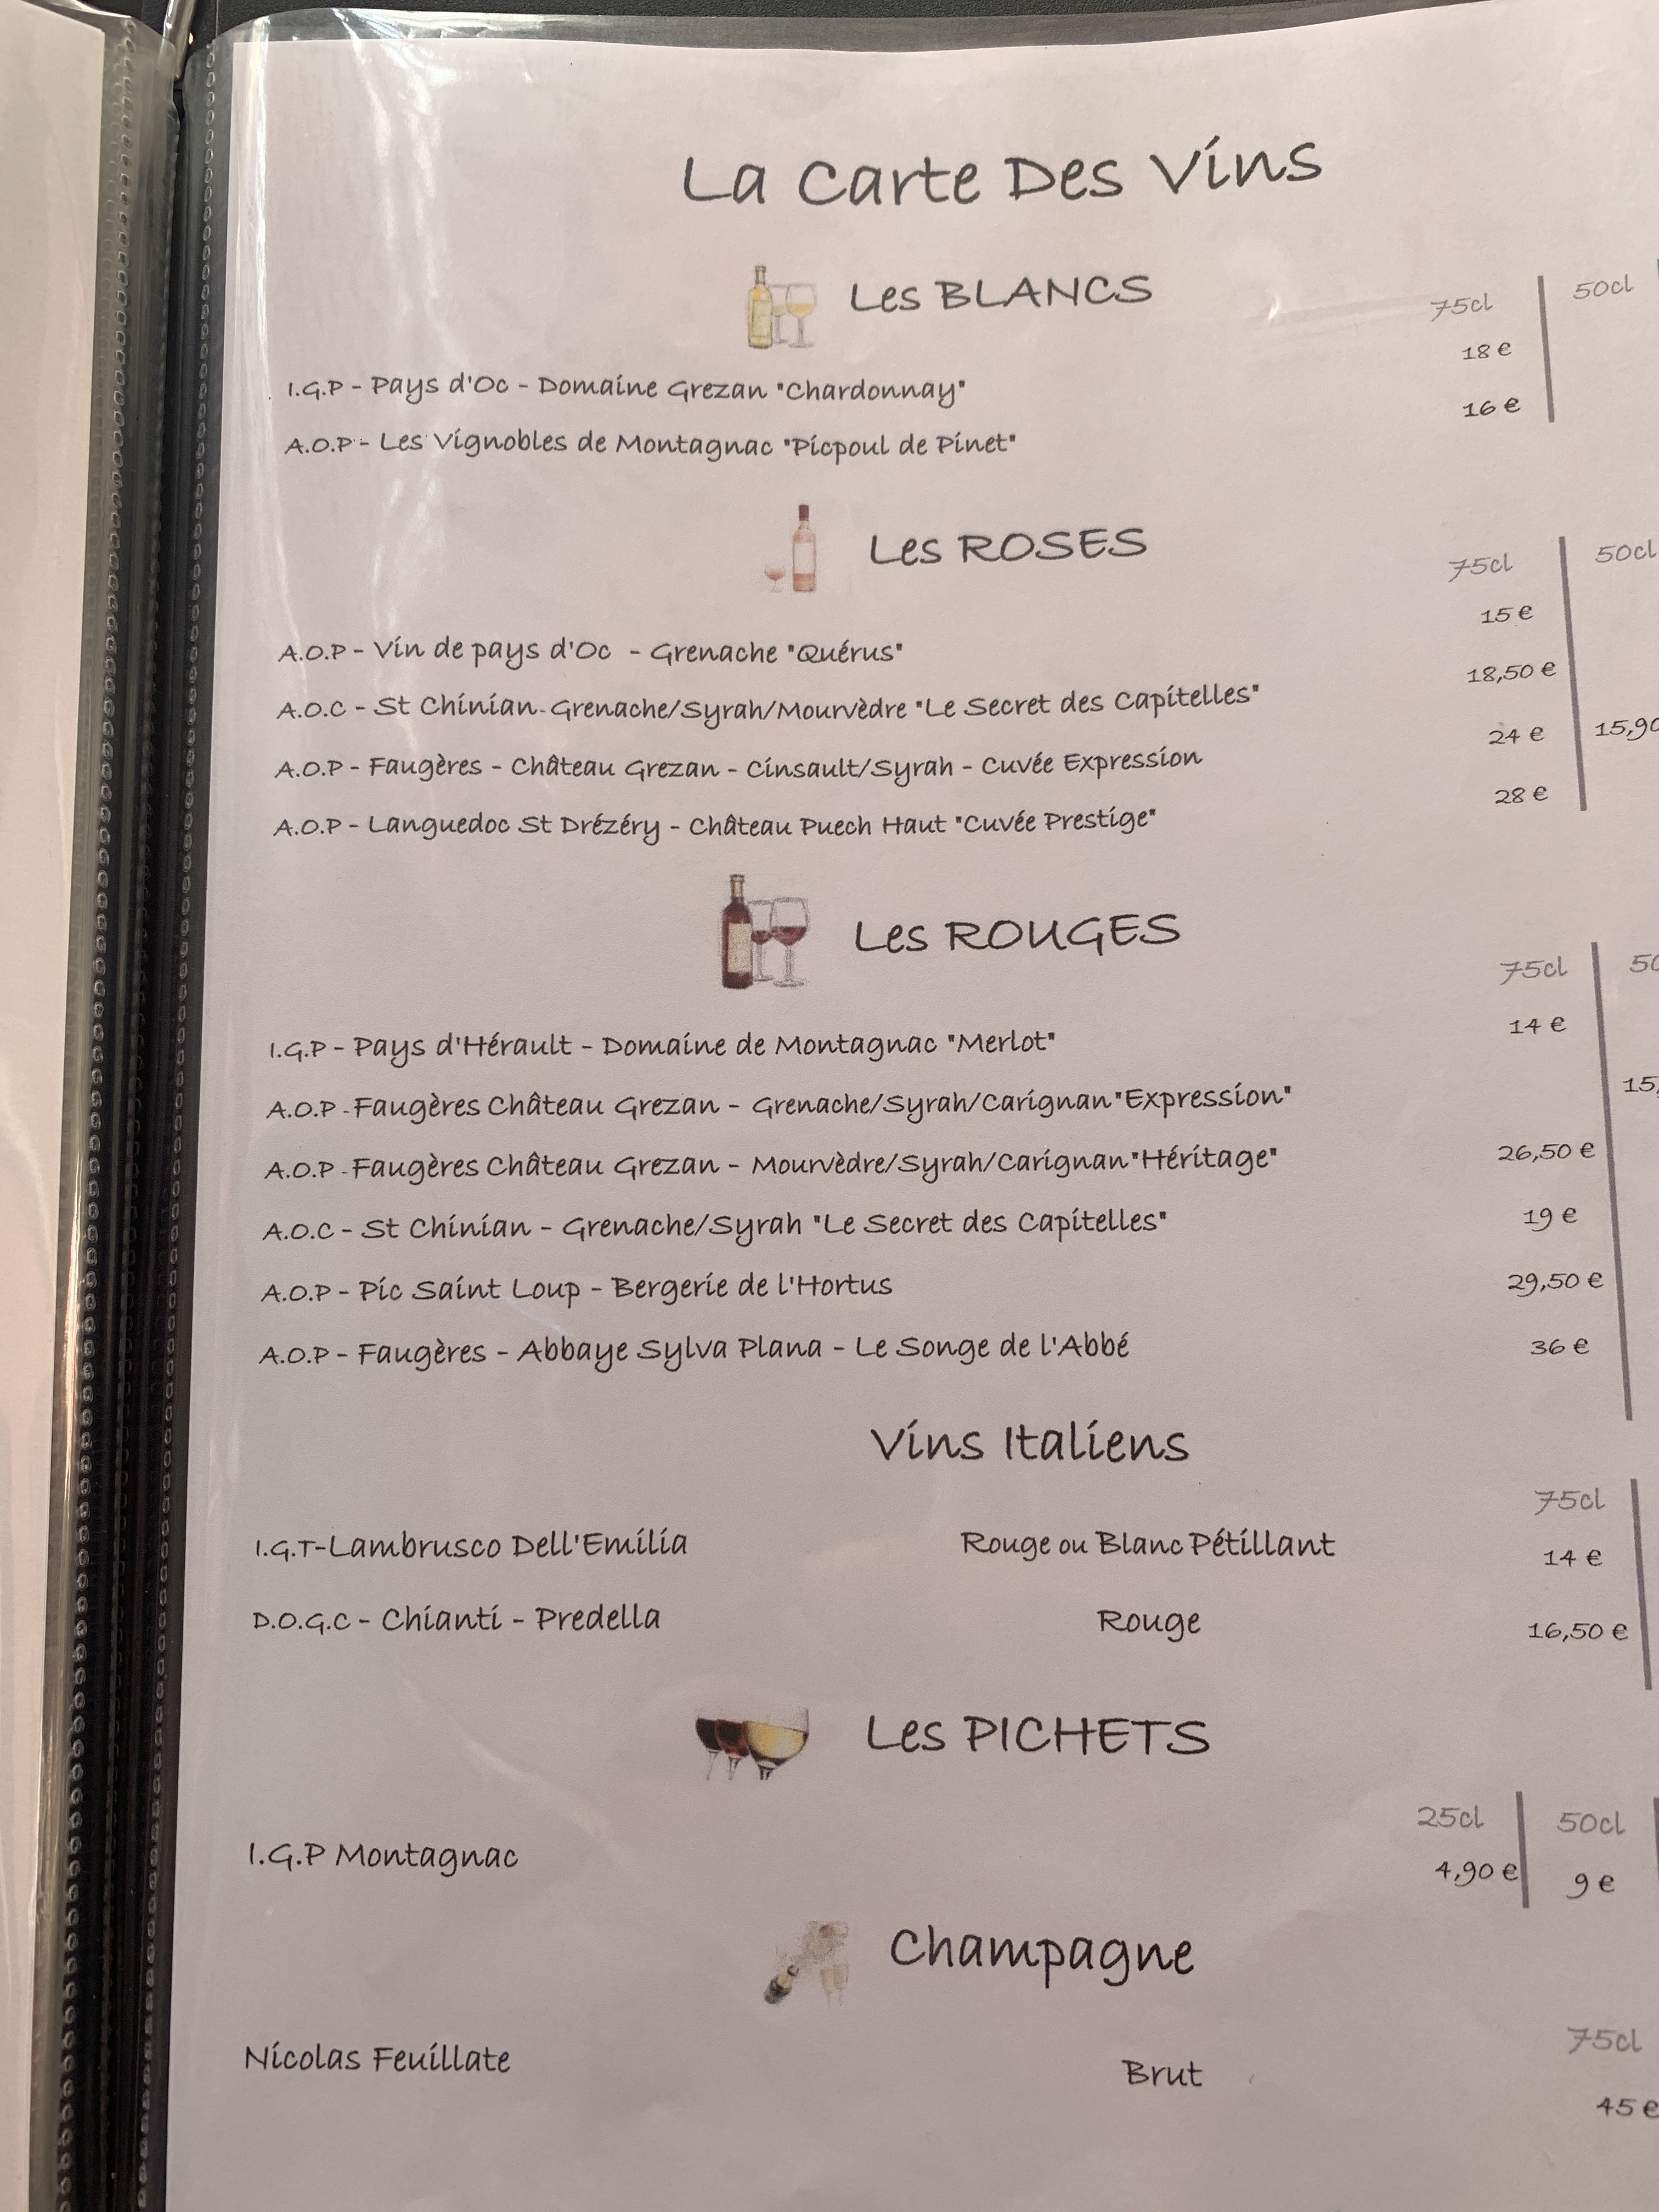 La Carte Des Vins
Les BLANCS
75cl 50cl
I.G.P - Pays d'Oc - Domaine Grezan "Chardonnay" 18 €
A.O.P - Les Vignobles de Montagnac "Picpoul de Pinet" 16 €
Les ROSES
75cl 50cl
A.O.P - Vin de pays d'Oc - Grenache "Quérus" 15 €
A.O.C - St Chinian - Grenache/Syrah/Mourvèdre "Le Secret des Capitelles" 18,50 €
A.O.P - Faugères - Château Grezan - Cinsault/Syrah - Cuvée Expression 24 € 15,90
A.O.P - Languedoc St Drézéry - Château Puech Haut "Cuvée Prestige" 28 €
Les ROUGES
75cl 50
I.G.P - Pays d'Hérault - Domaine de Montagnac "Merlot" 14 €
A.O.P - Faugères Château Grezan - Grenache/Syrah/Carignan "Expression" 15,
A.O.P - Faugères Château Grezan - Mourvèdre/Syrah/Carignan "Héritage" 26,50 €
A.O.C - St Chinian - Grenache/Syrah "Le Secret des Capitelles" 19 €
A.O.P - Pic Saint Loup - Bergerie de l'Hortus 29,50 €
A.O.P - Faugères - Abbaye Sylva Plana - Le Songe de l'Abbé 36 €
Vins Italiens
75cl
I.G.T-Lambrusco Dell'Emilia Rouge ou Blanc Pétillant 14 €
D.O.G.C - Chianti - Predella Rouge 16,50 €
Les PICHETS
25cl 50cl
I.G.P Montagnac 4,90 € 9 €
Champagne
75cl
Nicolas Feuillate Brut 45 €